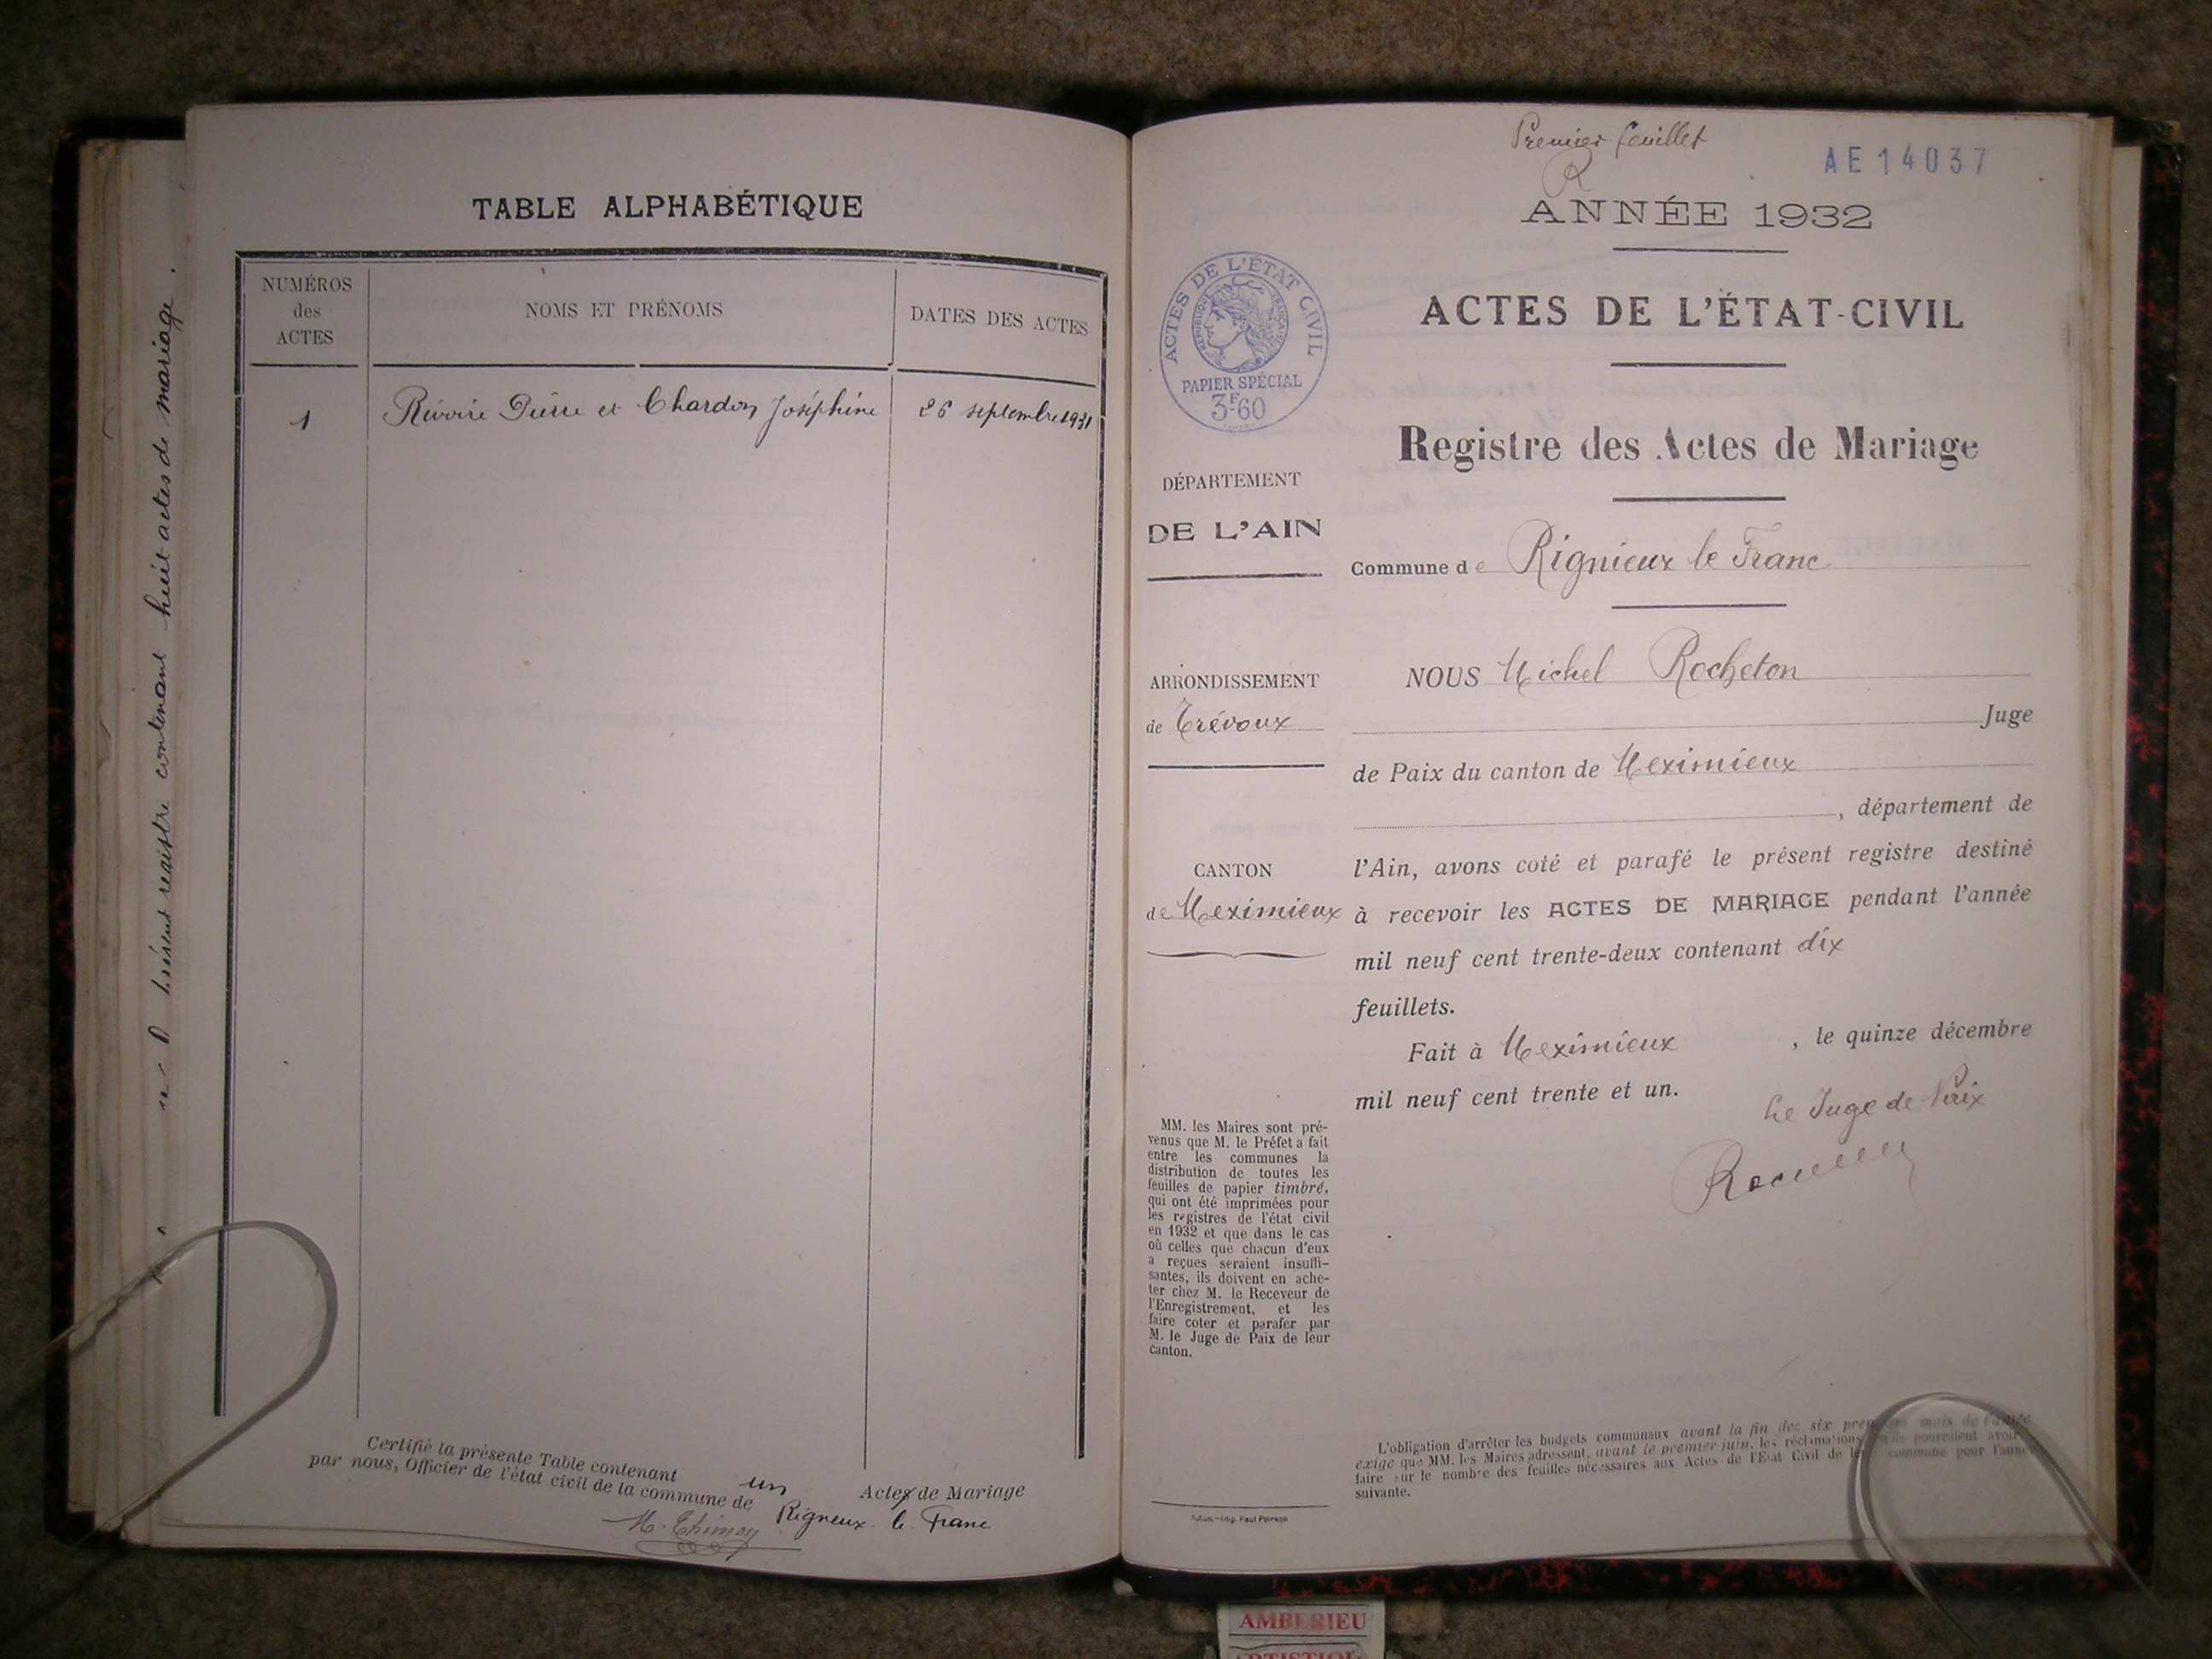 présent registre contenant huit actes de mariage.
TABLE ALPHABÉTIQUE
NUMÉROS
des
ACTES
NOMS ET PRÉNOMS
DATES DES ACTES
1
Rivoire Pierre et Chardon Joséphine
26 septembre 1931
Certifié la présente Table contenant un Actes de Mariage
par nous, Officier de l'état civil de la commune de Rigneux le Franc
M. Thimon
Premier feuillet
R
AE 14037
ANNÉE 1932
ACTES DE L'ÉTAT CIVIL
RÉPUBLIQUE FRANÇAISE
PAPIER SPÉCIAL
3F60
ACTES DE L'ÉTAT-CIVIL
Registre des Actes de Mariage
DÉPARTEMENT
DE L'AIN
Commune de Rignieux le Franc
ARRONDISSEMENT
de Trévoux
CANTON
de Meximieux
NOUS Michel Rocheton
Juge
de Paix du canton de Meximieux
, département de
l'Ain, avons coté et parafé le présent registre destiné
à recevoir les ACTES DE MARIAGE pendant l'année
mil neuf cent trente-deux contenant dix
feuillets.
Fait à Meximieux, le quinze décembre
mil neuf cent trente et un.
Le Juge de Paix
MM. les Maires sont pré-
venus que M. le Préfet a fait
entre les communes la
distribution de toutes les
feuilles de papier timbré,
qui ont été imprimées pour
les registres de l'état civil
en 1932 et que dans le cas
où celles que chacun d'eux
a reçues seraient insuffi-
santes, ils doivent en ache-
ter chez M. le Receveur de
l'Enregistrement, et les
faire coter et parafer par
M. le Juge de Paix de leur
Canton.
L'obligation d'arrêter les budgets communaux avant la fin des six premiers mois de l'année
exige que MM. les Maires adressent, avant le premier juin, les réclamations qu'ils pourraient avoir
faire sur le nombre des feuilles nécessaires aux Actes de l'Etat Civil de leur commune pour l'année
suivante.
Autun. - Imp. Paul
AMBERIEU